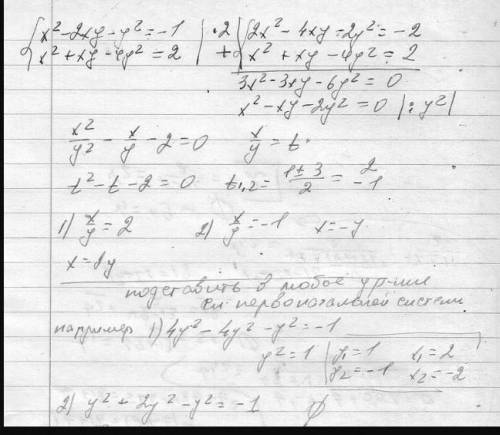 {x²-2xy-y²=-1 |·2 {2x²-4xy-2y²=-2
x²+xy-4y²=2 | + x²+xy-4y²=2
3x²-3xy-6y²=0
x²-xy-2y²=0 |:y²|
x²/y² - x/y - 2=0 x/y=t
t²-t-2=0 t₁,₂= (1±3)/2 = 2 -1
1) x/y=2 2) x/y=-1 x=-y
x=2y
подставить в любое ур-ние
первоначальной системы
например 1) 4y²-4y²-y²=-1
y²=1 | y₁=1 x₁=2
y₂=-1 x₂=-2
2) y²+2y²-y²=-1 ∅